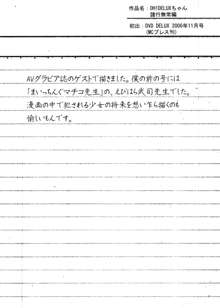 作品名:OH!DELUXちゃん
諸行無常編
初出:DVD DELUX 2006年11月号
(MCプレス刊)
AVグラビア誌のゲストで描きました。僕の前の号には
「まいっちんぐマチコ先生」の、えびはら武司先生でした。
漫画の中で犯される少女の将来を想い乍ら描くのも
愉しいもんです。